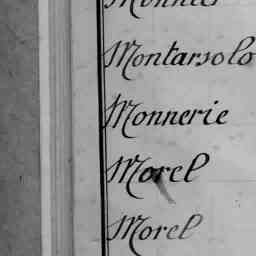 Monnier
Montarsolo
Monnerie
Morel
Morel